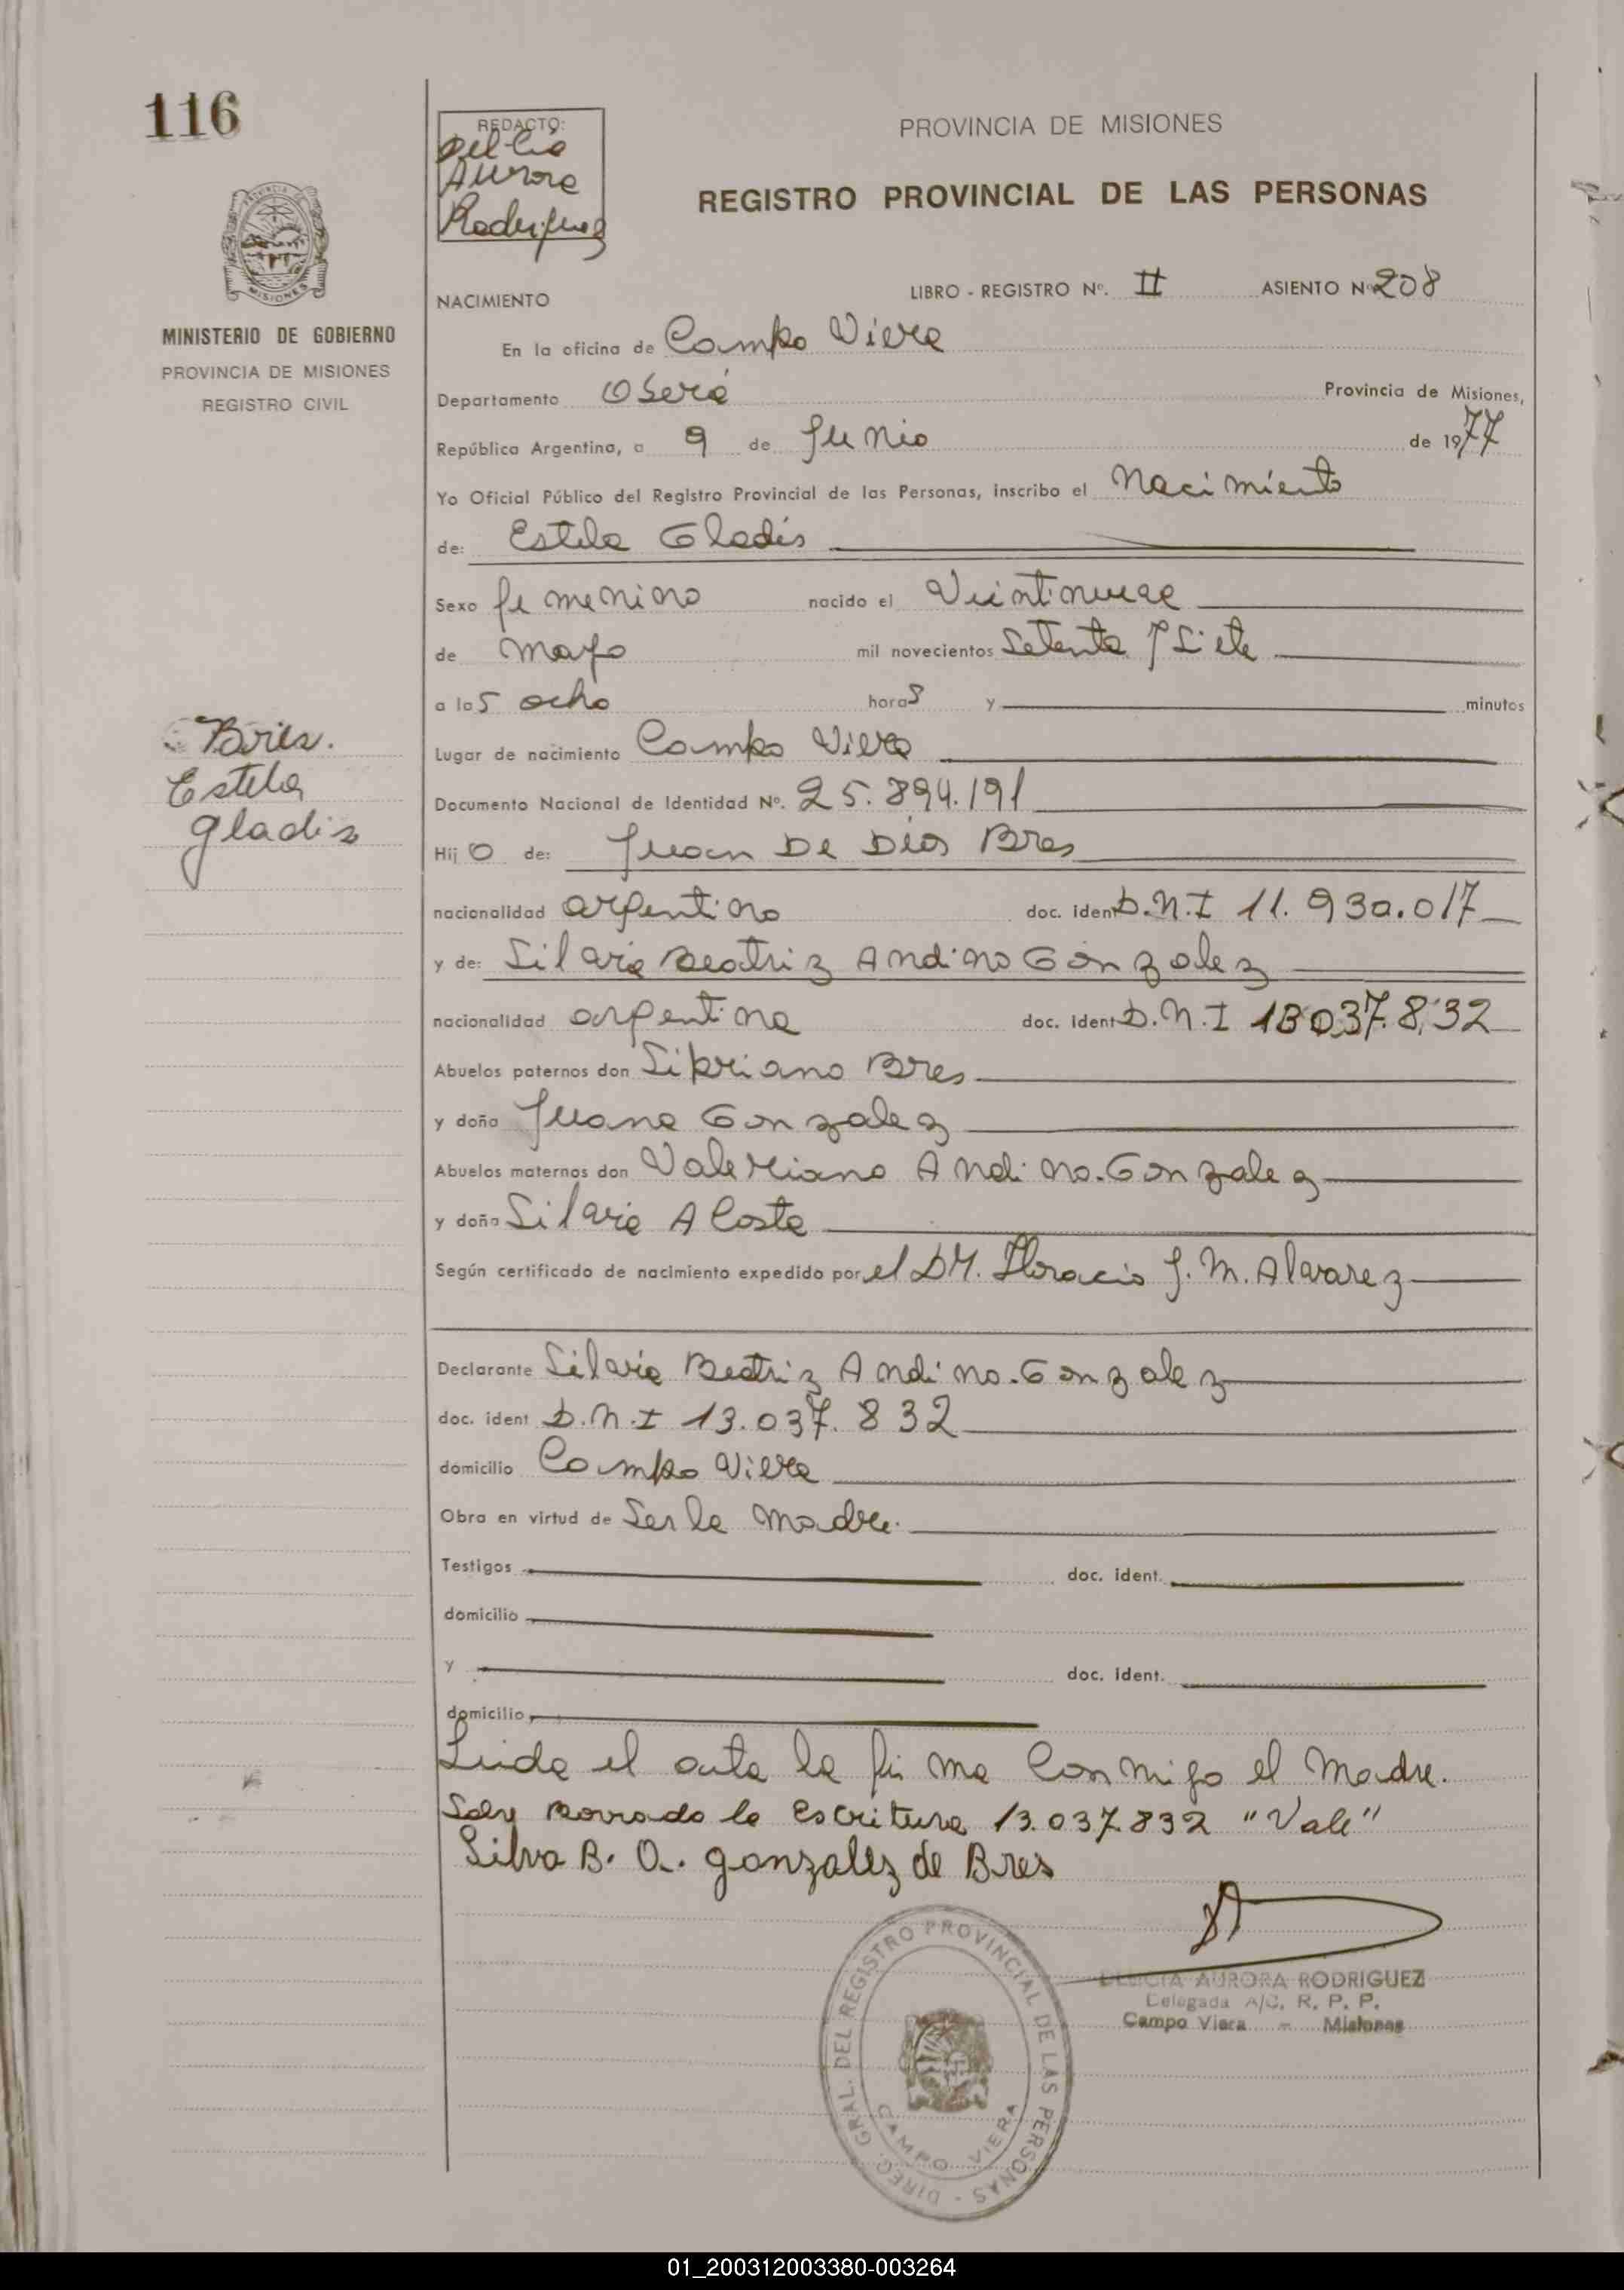 116
REDACTO:
Aurora
Rodriguez
PROVINCIA DE MISIONES
REGISTRO PROVINCIAL DE LAS PERSONAS
PROVINCIA DE
MISIONES
MINISTERIO DE GOBIERNO
PROVINCIA DE MISIONES
REGISTRO CIVIL
NACIMIENTO
LIBRO - REGISTRO Nº. II ASIENTO Nº 208
En la oficina de Campo Viera
Departamento Oberá Provincia de Misiones,
República Argentina, a 9 de Junio de 1977
Yo Oficial Público del Registro Provincial de las Personas, inscribo el Nacimiento
de: Estela Gladis
Sexo femenino nacido el Veintinueve
de mayo mil novecientos Setenta y Siete
a las ocho horas y minutos
Bres.
Estela
Gladis
Lugar de nacimiento Campo Viera
Documento Nacional de Identidad Nº. 25.894.191
Hijo de: Juan De Dios Bres
nacionalidad argentino doc. ident D.N.I 11.930.017
y de: Silvia Beatriz Andino Gonzalez
nacionalidad argentina doc. ident D.N.I 13037.832
Abuelos paternos don Sipriano Bres
y doña Juana Gonzalez
Abuelos maternos don Valeriano Andino.Gonzalez
y doña Silvia Acosta
Según certificado de nacimiento expedido por el DR. Horacio J. M. Alvarez
Declarante Silvia Beatriz Andino.Gonzalez
doc. ident D.N.I 13.037.832
domicilio Campo Viera
Obra en virtud de Ser la Madre.
Testigos doc. ident.
domicilio
y doc. ident.
domicilio
Leida el acta la firma Conmigo el Madre.
Sobre Borrado la Escritura 13.037.832 "Vale"
Silva B. A. gonzalez de Bres
DELICIA AURORA RODRIGUEZ
Delegada A/C. R. P. P.
Campo Viera - Misiones
DIREC. GRAL. DEL REGISTRO PROVINCIAL DE LAS PERSONAS -
CAMPO VIERA
01_200312003380-003264